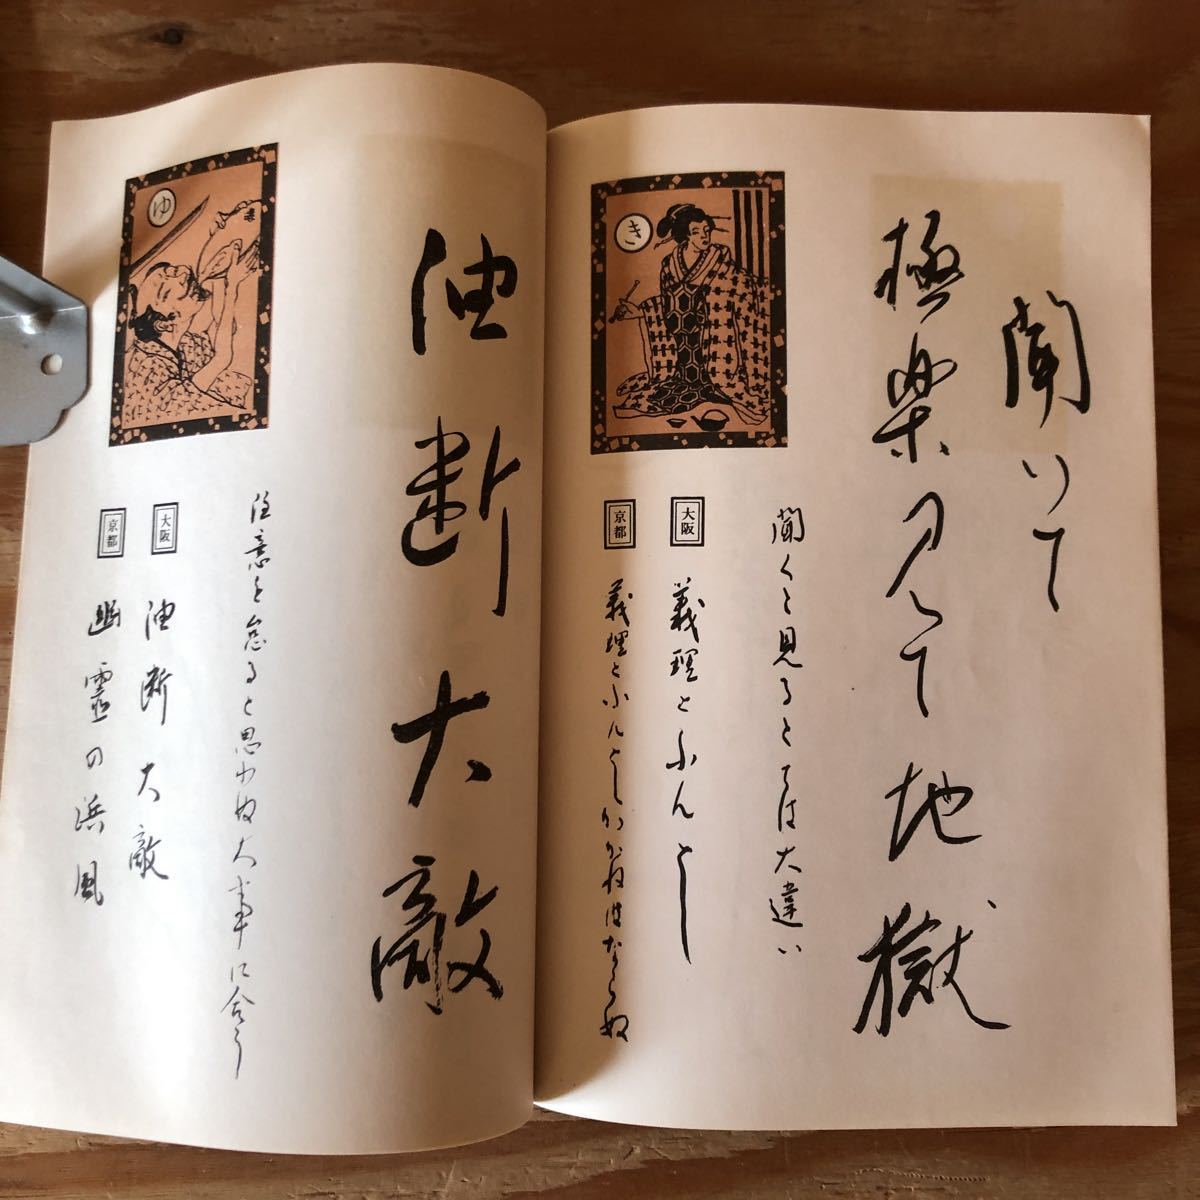 聞いて
極楽見て地獄
き
聞くと見るとでは大違い
大阪
義理とふんどし
京都
義理とふんどしかかねばならぬ
油断大敵
ゆ
注意を怠ると思わぬ大事に会う
大阪
油断大敵
京都
幽霊の浜風